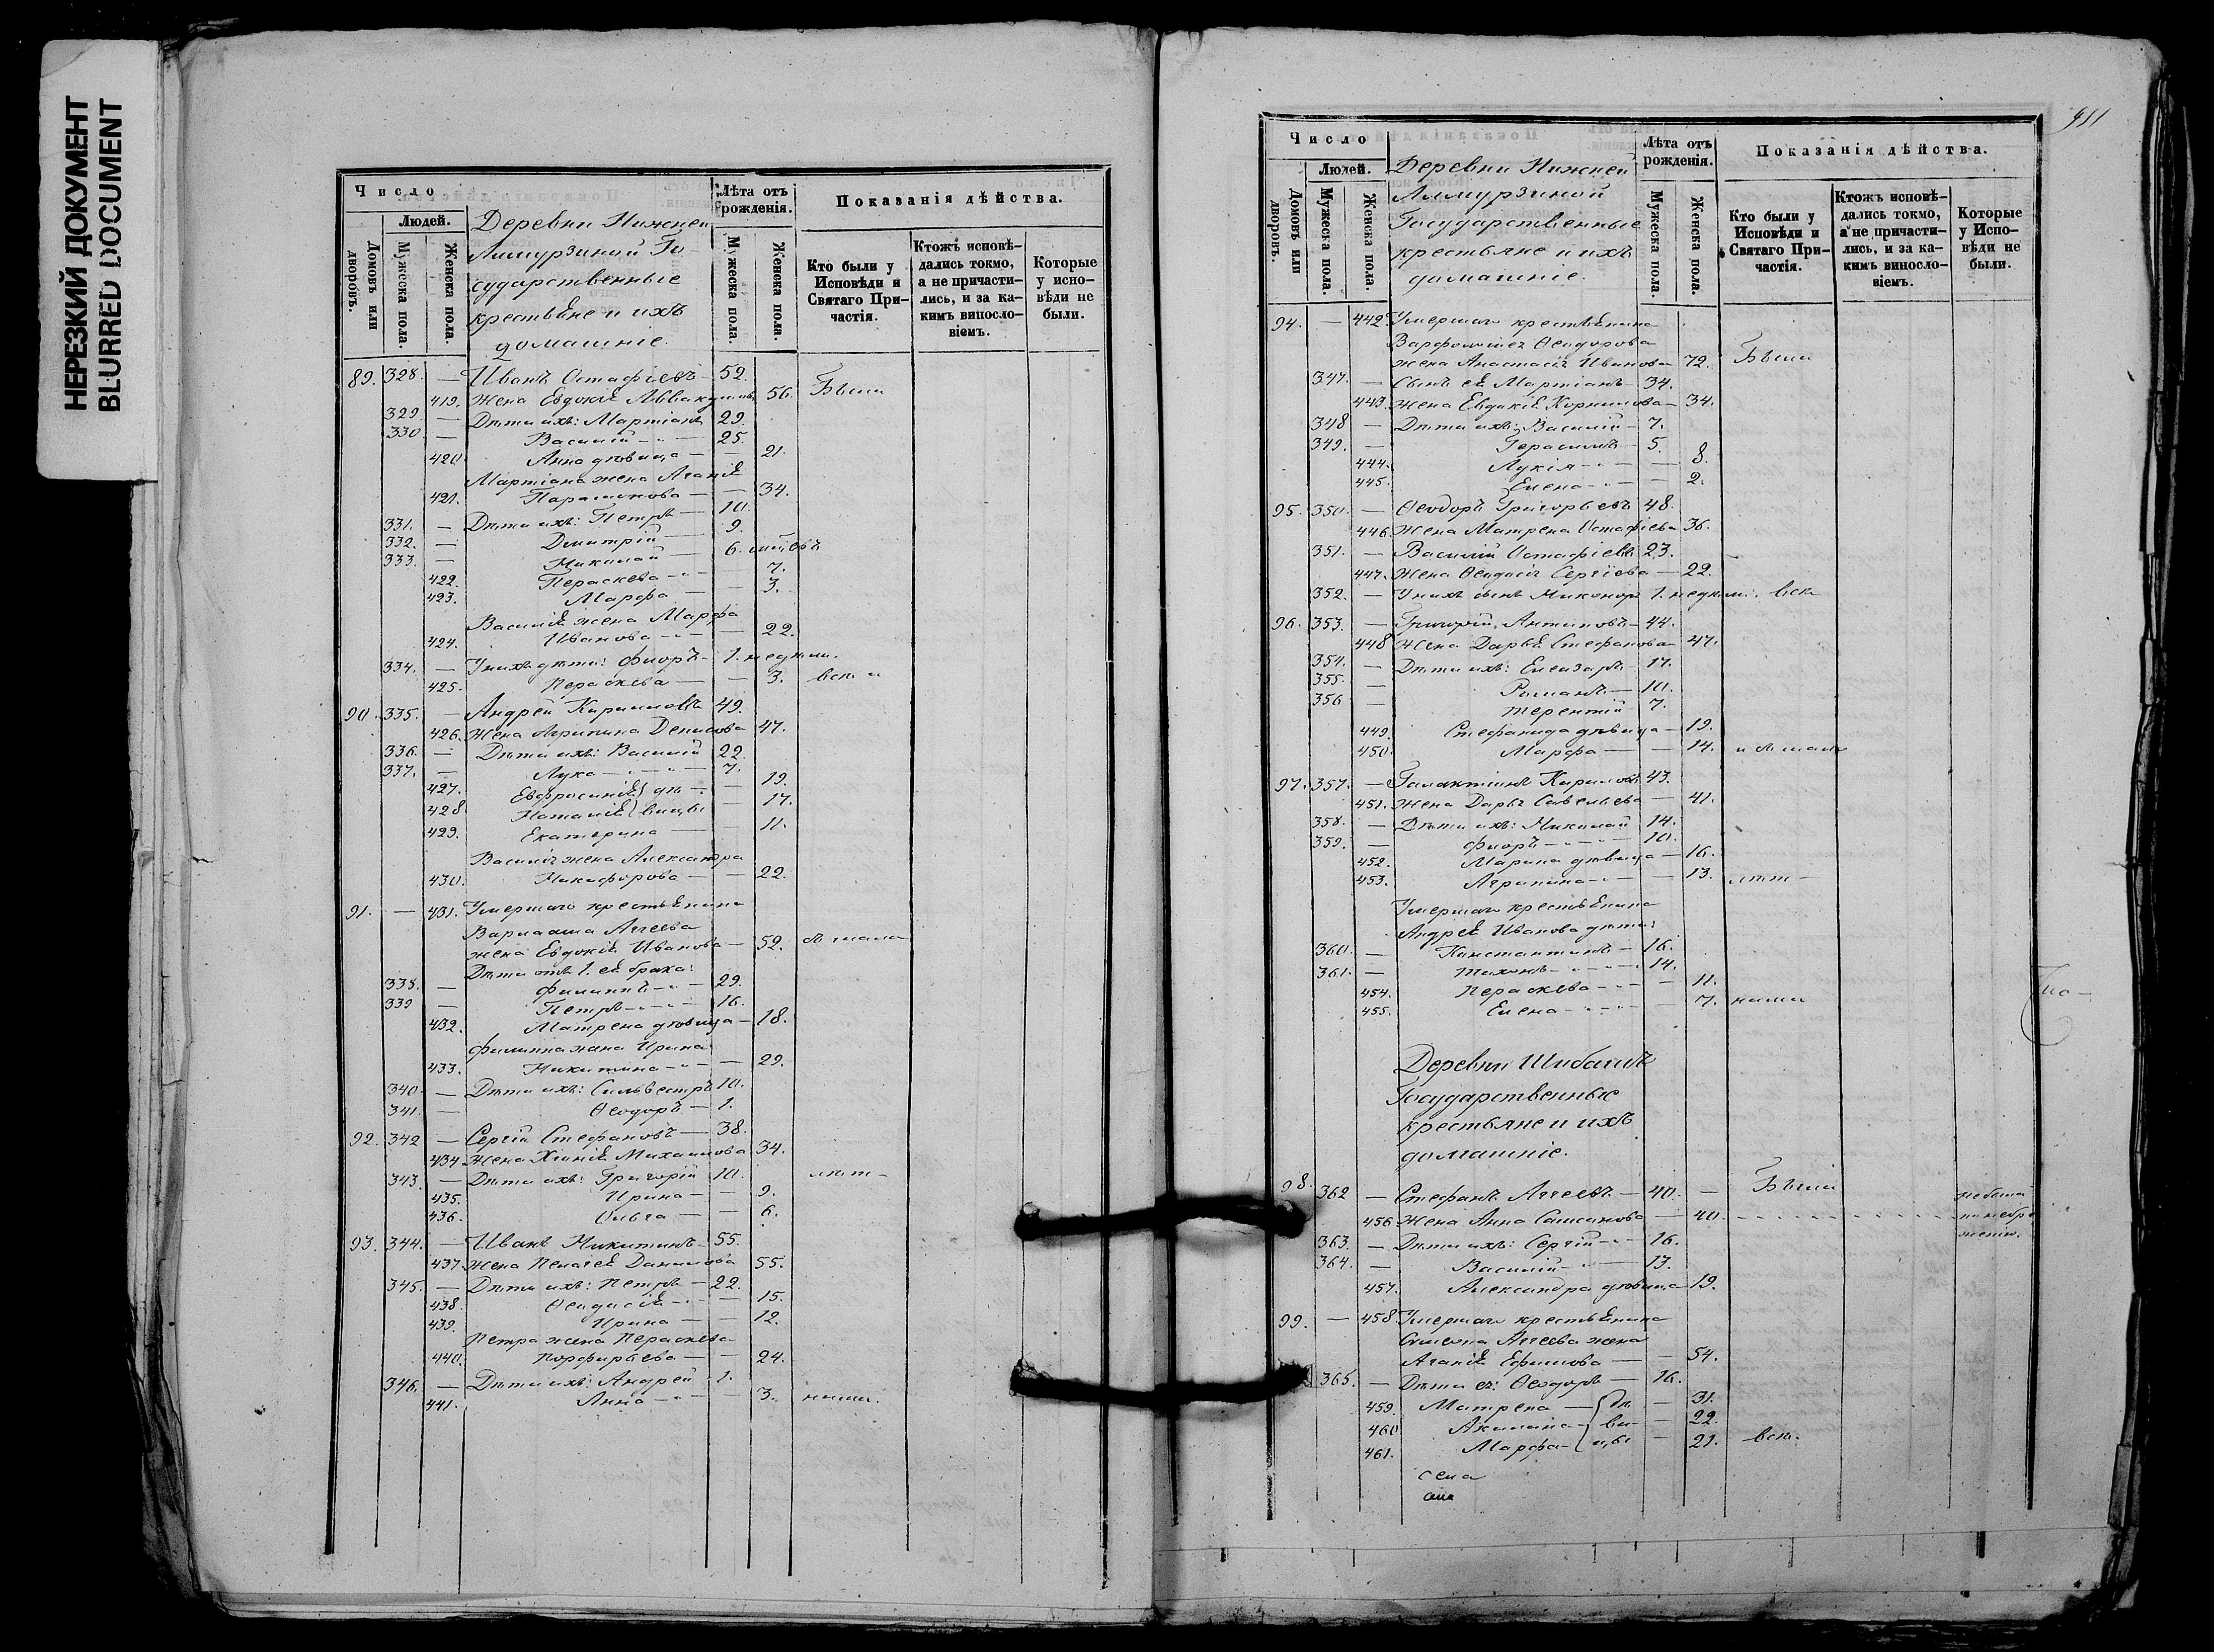 НЕРЕЗКИЙ ДОКУМЕНТ
BLURRED DOCUMENT
Число
Людей.
Домовъ или дворовъ.
Мужеска пола.
Женска пола.
Деревни Нижней
Алмурзиной Го-
сударственные
крестьяне и ихъ
домашніе.
Лѣта отъ рожденія.
Мужеска пола.
Женска пола.
Показанія дѣйства.
Кто были у Исповѣди и Святаго При-частія.
Ктожъ исповѣ-дались токмо, а не причасти-лись, и за ка-кимъ виносло-віемъ.
Которые у испо-вѣди не были.
89. 328. — Иванъ Остафіевъ — 52.
419. Жена Евдокія Аввакумова 56. Были
329. — Дѣти ихъ: Мартіанъ 29.
330. — Василій — 25.
420. Анна дѣвица — — 21.
Мартіана жена Агафія
421. Парамонова — — 34.
331. — Дѣти ихъ: Петръ — 10.
332. — Дмитрій 9.
333. — Николай — 6. мѣсяцовъ
422. Пераскева — — 7.
423. Марфа — — 3.
Василія жена Марфа
424. Иванова — — 22.
334. — У нихъ дѣти: Флоръ — 1. недѣли.
425. Пераскева — — 3. всѣ и
90. 335. — Андрей Кириловъ 49.
426. Жена Агрипина Денисова 47.
336. — Дѣти ихъ: Василій 22.
337. — Лука — 7.
427. Евфросинія } дѣ- — 19.
428. Наталія } вицы — 17.
429. Екатерина — 11.
Василія жена Александра
430. Никифорова — — 22.
91. — 431. Умершаго крестьянина
Варлаама Аггеева
жена Евдокія Иванова — 52.
Дѣти отъ 1. ея брака:
338. — Филиппъ — 29.
339 — Петръ — 16.
432. Матрена дѣвица — 18.
Филиппа жена Ирина
433. Никитина — — 29.
340. — Дѣти ихъ: Сильвестръ 10.
341. — Ѳеодоръ — 1.
92. 342 — Сергій Стефановъ — 38.
434. Жена Ксенія Михаилова 34.
343. — Дѣти ихъ: Григорій 10. лѣт-
435. Ирина — — 9.
436. Ольга — — 6.
93. 344. — Иванъ Никитинъ — 55.
437. Жена Пелагея Данилова 55.
345. — Дѣти ихъ: Петръ — 22.
438. Ѳеодосія — — 15.
439. Ирина — — 12.
Петра жена Пераскева
440. Порфирьева — — 24.
346. — Дѣти ихъ: Андрей 1.
441. Анна — — 3. ними.
411
Число
Людей.
Домовъ или дворовъ.
Мужеска пола.
Женска пола.
Деревни Нижней
Алмурзиной
Государственные
крестьяне и ихъ
домашніе.
Лѣта отъ рожденія.
Мужеска пола.
Женска пола.
Показанія дѣйства.
Кто были у Исповѣди и Святаго При-частія.
Ктожъ исповѣ-дались токмо, а не причасти-лись, и за ка-кимъ виносло-віемъ.
Которые у Испо-вѣди не были.
94. — 442. Умершаго крестьянина
Варфоломея Ѳеодорова
жена Анастасія Иванова 72. Были
347. — Сынъ ея Мартіанъ — 34.
443. Жена Евдокія Корнилова — 34.
348 — Дѣти ихъ: Василій — 7.
349. — Герасимъ — 5.
444. Лукія — — 8.
445. Елена — — 2.
95. 350. — Ѳеодоръ Григорьевъ 48.
446. Жена Матрена Остафіева 36.
351. — Василій Остафіевъ 23.
447. Жена Ѳеодосія Сергіева — 22.
352. — У нихъ сынъ Никоноръ 1. недѣли. всѣ
96. 353. — Григорій Антиповъ — 44.
448 Жена Дарья Стефанова 47.
354. — Дѣти ихъ: Елеазаръ 17.
355. — Романъ — 10.
356 — Терентій 7.
449. Стефанида дѣвица — 19.
450. Марфа — — 14.
97. 357. — Галактіонъ Кириловъ 43.
451. Жена Дарья Савельева — 41.
358. — Дѣти ихъ: Николай 14.
359. — Флоръ — 10.
452. Марина дѣвица — 16.
453. Агрипина — — 13. лѣт-
Умершаго крестьянина
Андрея Иванова дѣти:
360. — Константинъ — 16.
361. — Тихонъ — 14.
454. Пераскева — — 11.
455. Елена — — 7. ними
Деревни Шибаши
Государственные
крестьяне и ихъ
домашніе.
98. 362 — Стефанъ Аггеевъ — 40. — Были
456 Жена Анна Самсонова — 40. не была по небре жению.
363. — Дѣти ихъ: Сергій — 16.
364. — Василій — 13.
457. Александра дѣвица 19.
99. — 458 Умершаго крестьянина
Симеона Аггеева жена
Агафія Ефимова — — 54.
365. — Дѣти ея: Ѳеодоръ — 16.
459. Матрена — { дѣ- — 31.
460 Акилина — { ви- — 22.
461. Марфа — { цы — 21. всѣ.